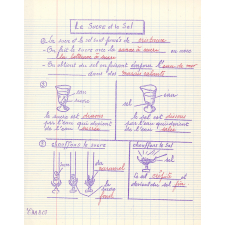 Le Sucre et le Sel
le sucre et le sel sont
On fait le sucre avec la canne à sucre ou avec
les betteraves à sucre
On obtient du sel en faisant évaporer l'eau de mer
dans des marais salants
eau
sucre
eau
sel
le sucre est dissous
par l'eau qui devient
de l'eau sucrée
le sel est dissous
par l'eau qui devient
de l'eau salée
chauffons le sucre
chauffons le sel
sucre
du
caramel
sel
le sucre
fond
Le sel
devient du sel fin